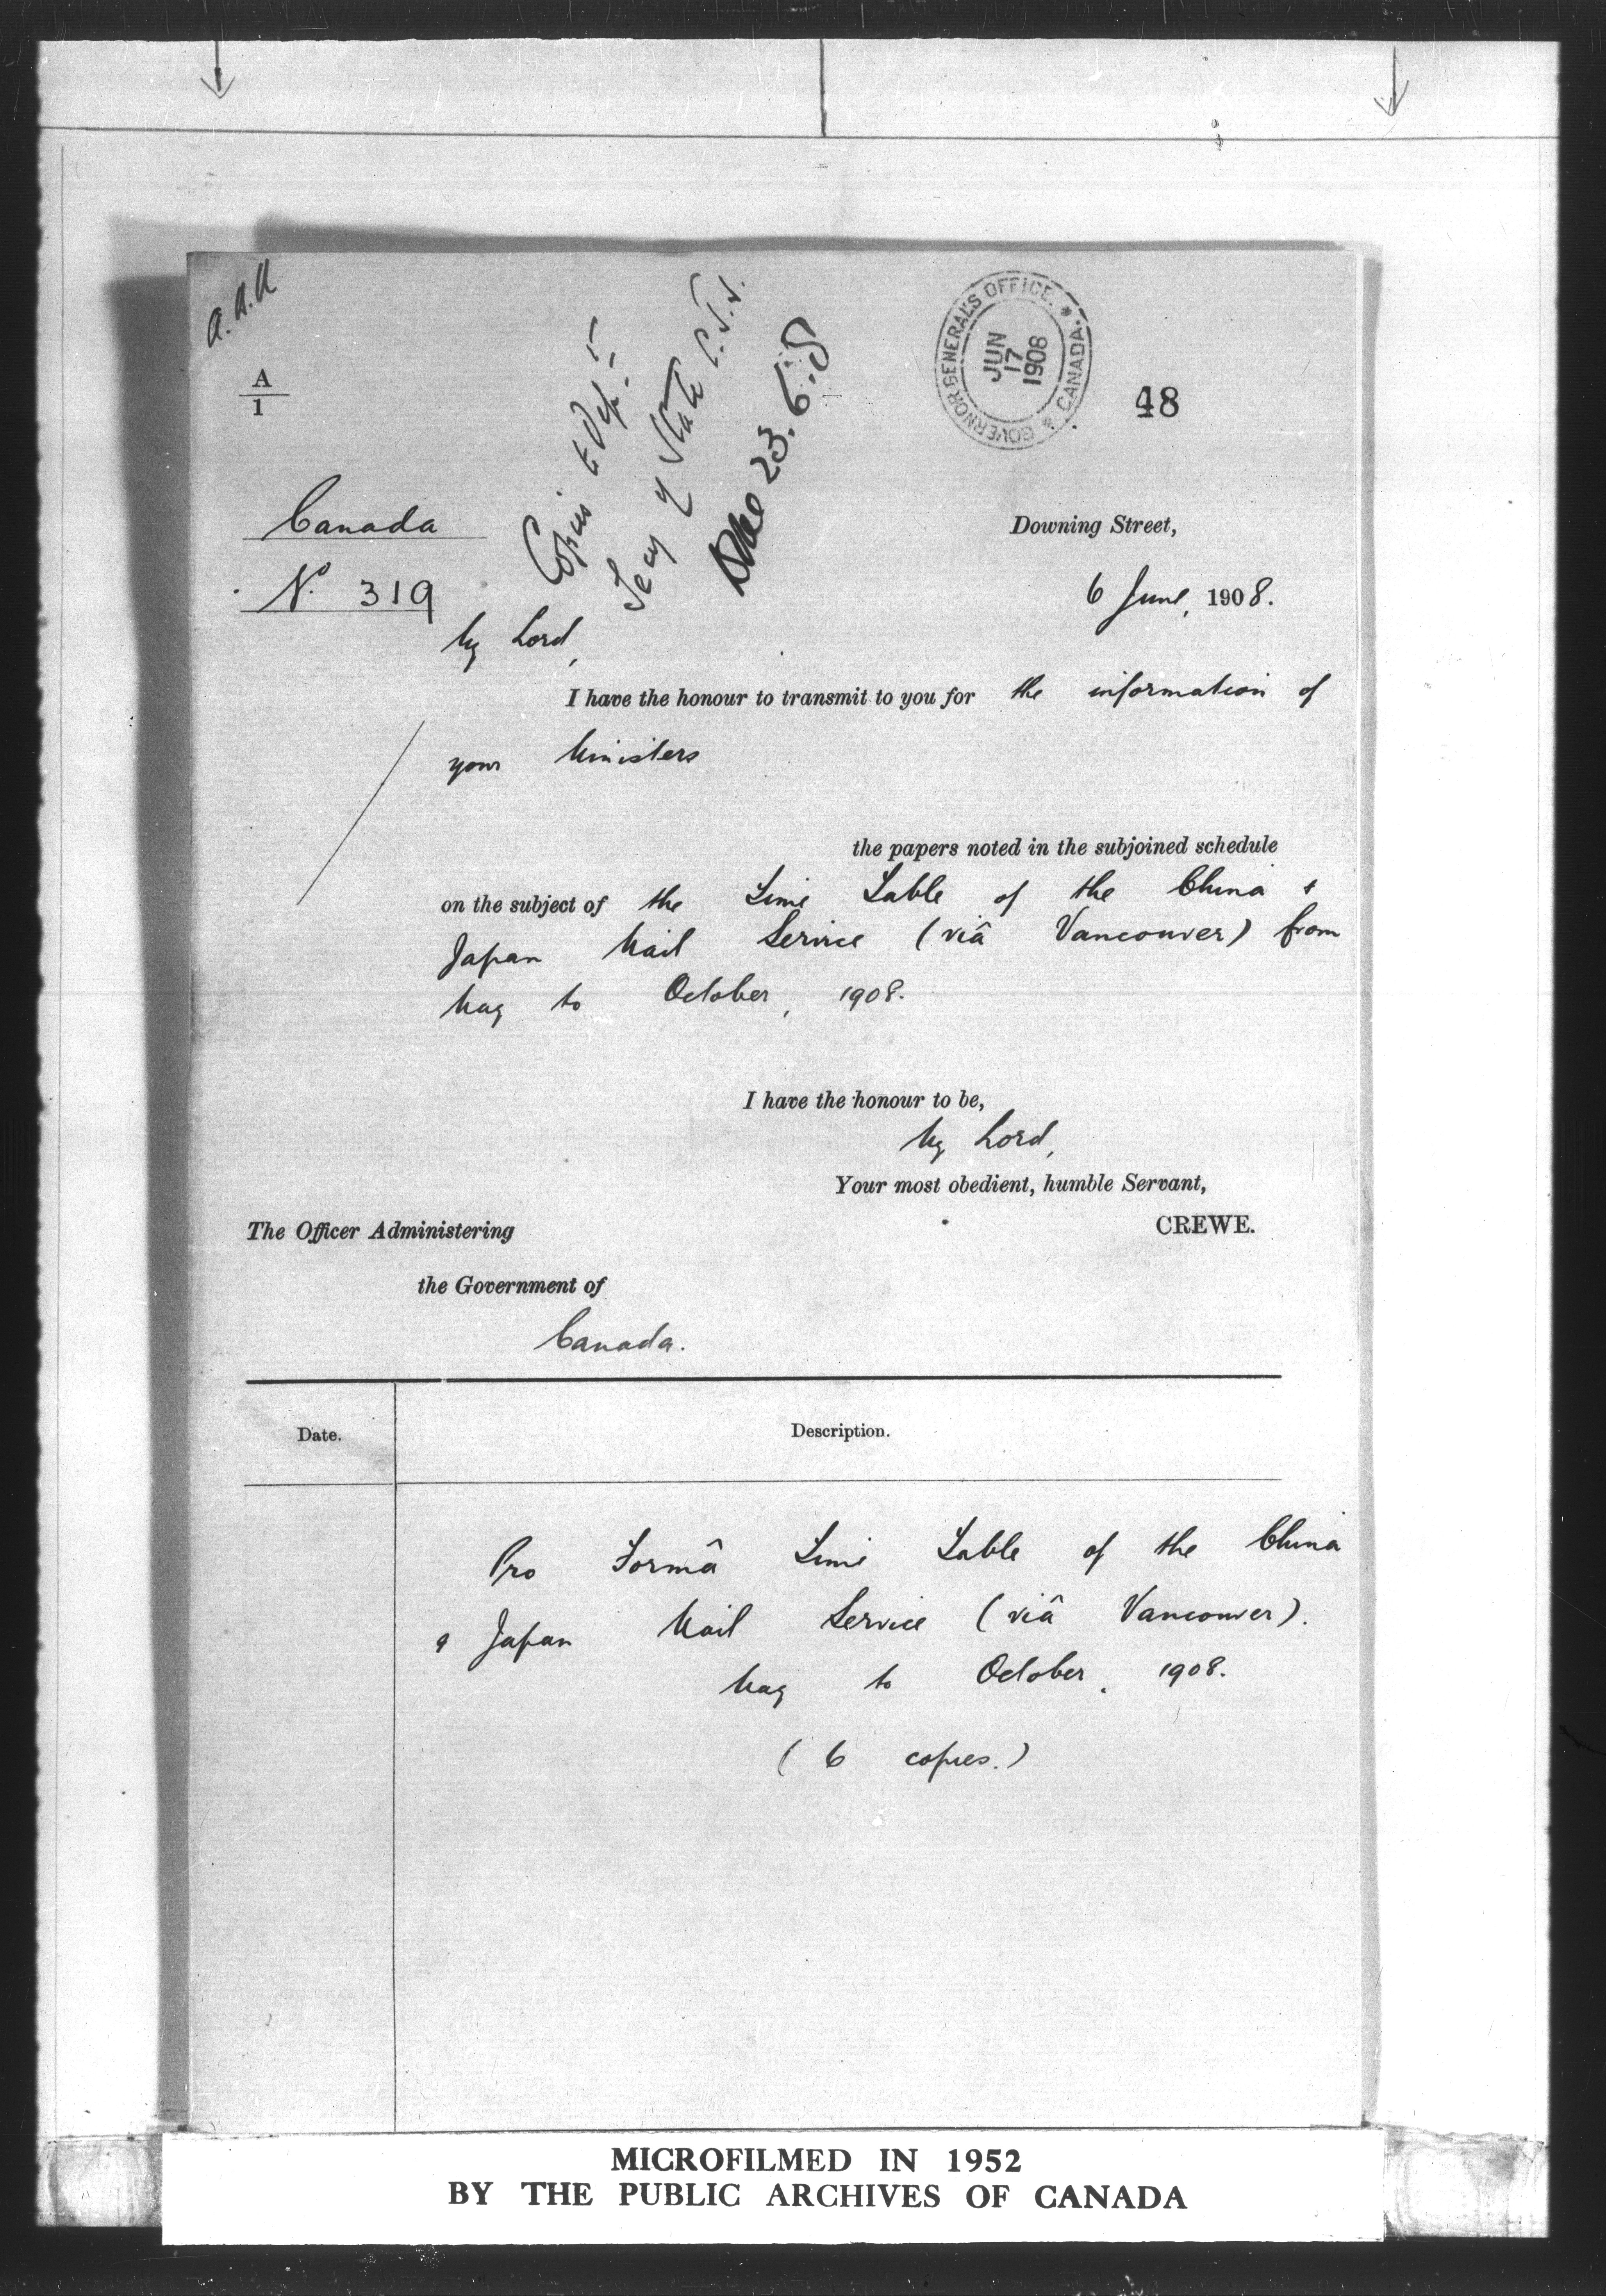 A
1
GOVERNOR GENERAL'S OFFICE. * CANADA. *
JUN
17
1908
48
Copies to
Secy of State
23.6.8
Canada
Downing Street,
No. 319
6 June, 1908.
My Lord,
I have the honour to transmit to you for the information of
your Ministers
the papers noted in the subjoined schedule
on the subject of the Time Table of the China &
Japan Mail Service (viâ Vancouver) from
May to October, 1908.
I have the honour to be,
My Lord,
Your most obedient, humble Servant,
CREWE.
The Officer Administering
the Government of
Canada.
Date.
Description.
Pro Formâ Time Table of the China
& Japan Mail Service (viâ Vancouver).
May to October, 1908.
(6 copies.)
MICROFILMED IN 1952
BY THE PUBLIC ARCHIVES OF CANADA